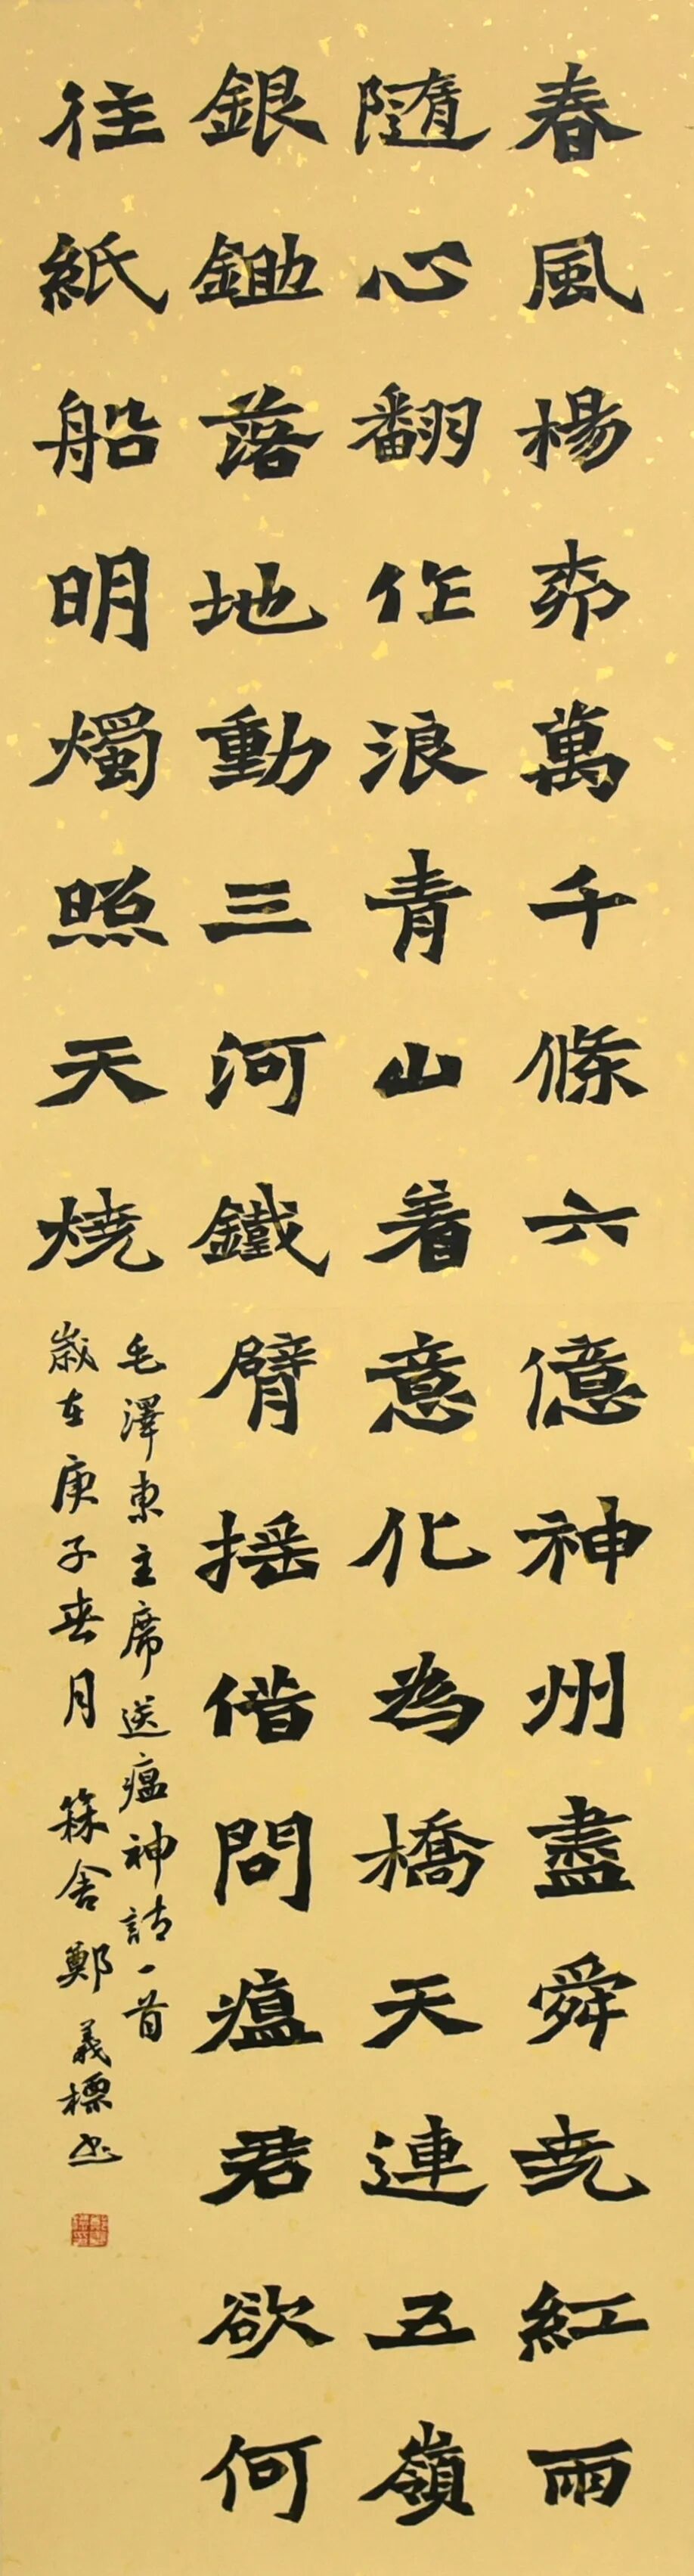 春風楊栁萬千條六億神州盡舜尭紅雨
隨心翻作浪青山着意化為橋天連五嶺
銀鋤落地動三河鐵臂摇借問瘟君欲何
往紙船明燭照天燒
毛澤東主席送瘟神詩一首
歲在庚子春月 箖舍鄭義標书